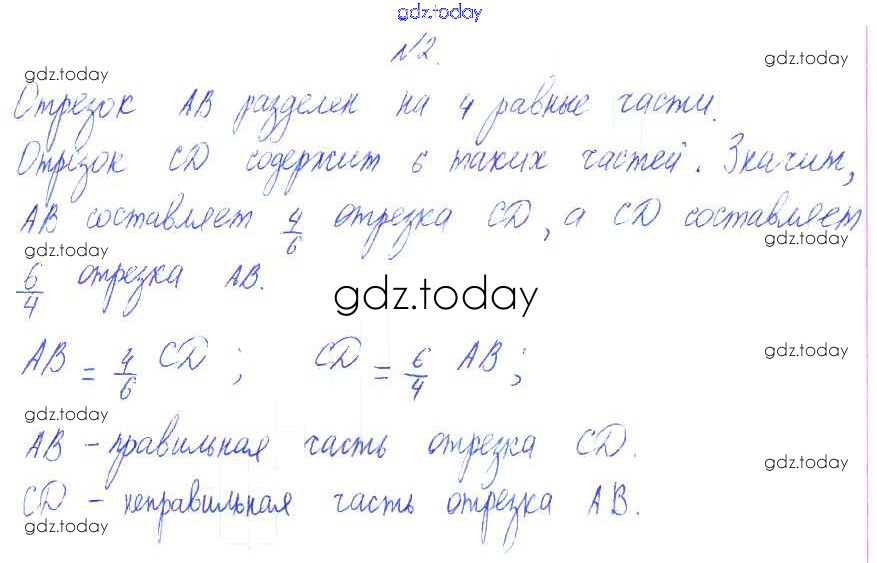 gdz.today
№2.
gdz.today gdz.today
Отрезок AB разделен на 4 равные части.
Отрезок CD содержит 6 таких частей. Значит,
gdz.today
AB составляет 4/6 отрезка CD, а CD составляет
gdz.today gdz.today
6/4 отрезка AB.
gdz.today
AB = 4/6 CD; CD = 6/4 AB;
gdz.today
gdz.today
AB - правильная часть отрезка CD.
gdz.today
CD - неправильная часть отрезка AB.
gdz.today